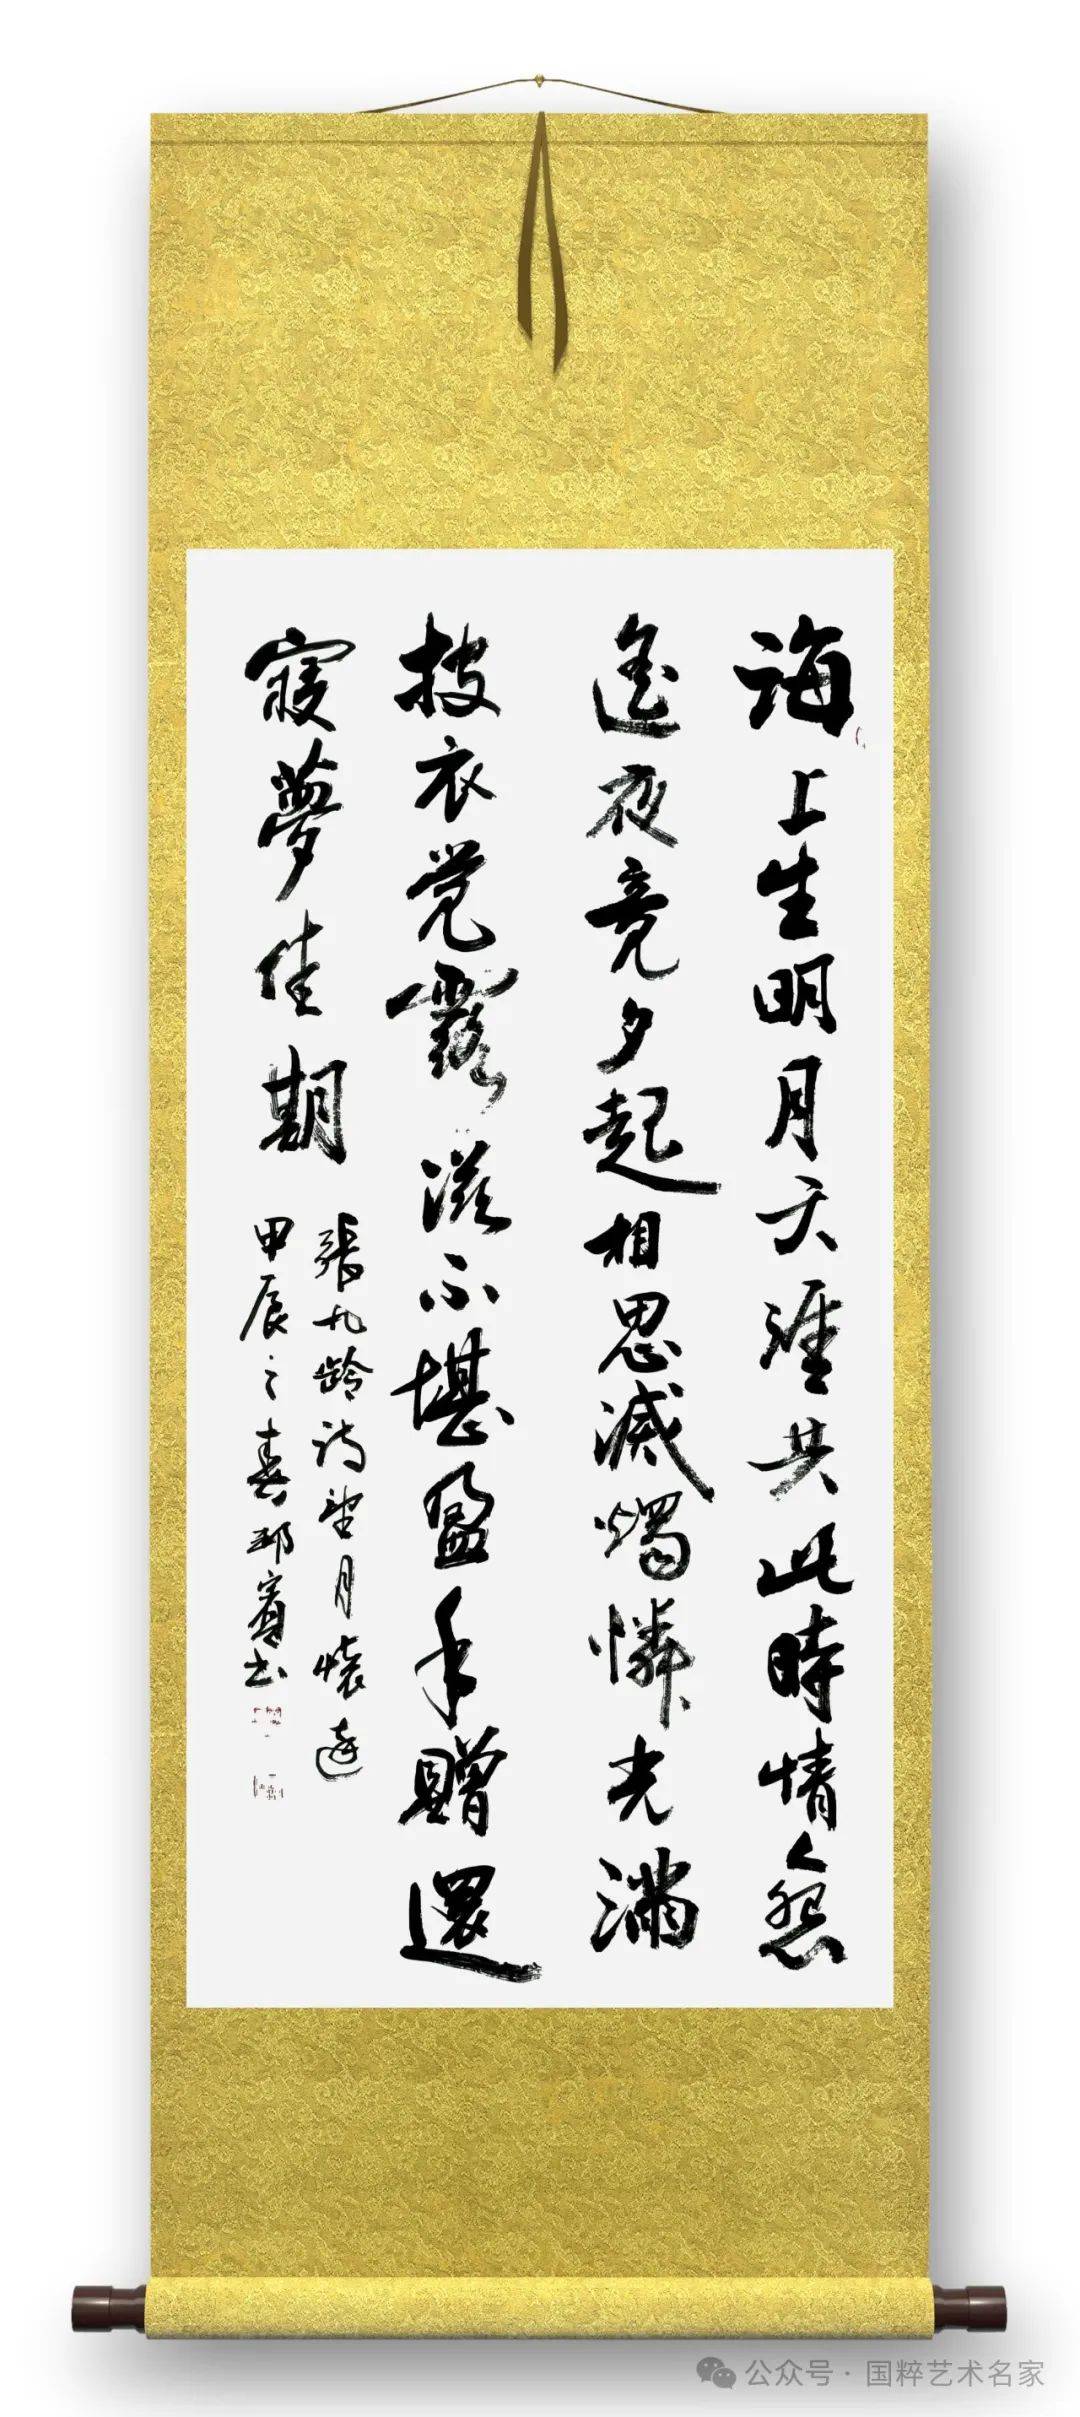 海上生明月天涯共此时情人怨
遥夜竟夕起相思滅燭憐光满
披衣觉露滋不堪盈手贈還
寝夢佳期
張九龄诗望月懷遠
甲辰之春邦賓书
公众号·国粹艺术名家